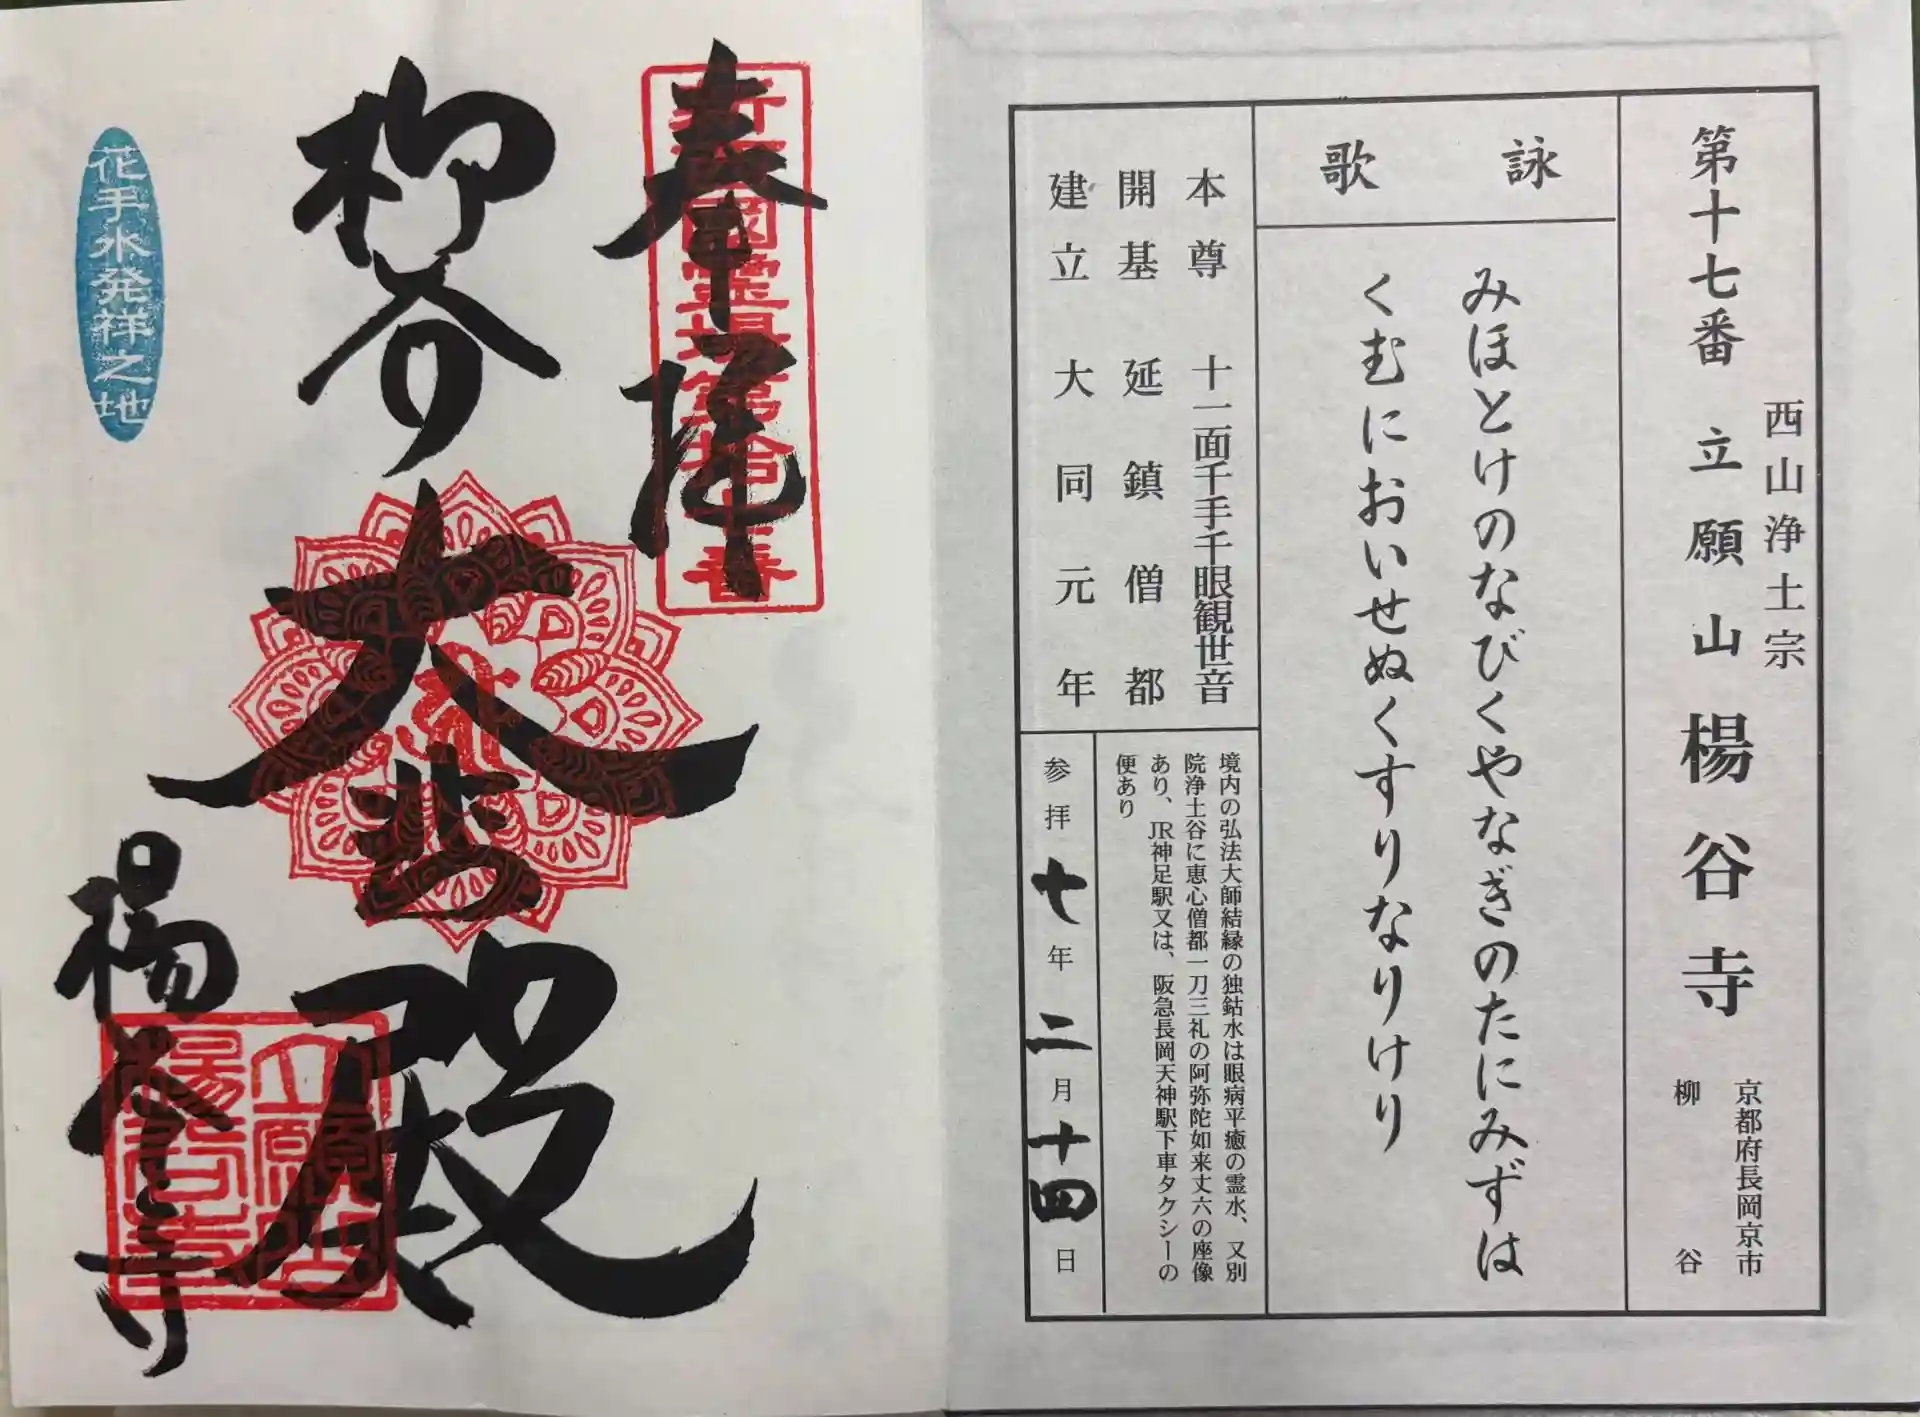 第十七番 立願山 楊谷寺
西山浄土宗
京都府長岡京市
柳谷
詠歌
みほとけのなびくやなぎのたにみずは
くむにおいせぬくすりなりけり
本尊 十一面千手千眼観世音
開基 延鎮僧都
建立 大同元年
境内の弘法大師結縁の独鈷水は眼病平癒の霊水、又別
院浄土谷に恵心僧都一刀三礼の阿弥陀如来丈六の座像
あり、JR神足駅又は、阪急長岡天神駅下車タクシーの
便あり
参拝 七年 二月 十四日
奉拝
新西国霊場第拾七番
柳谷
大悲殿
楊谷寺
立願山
楊谷寺
花手水発祥之地